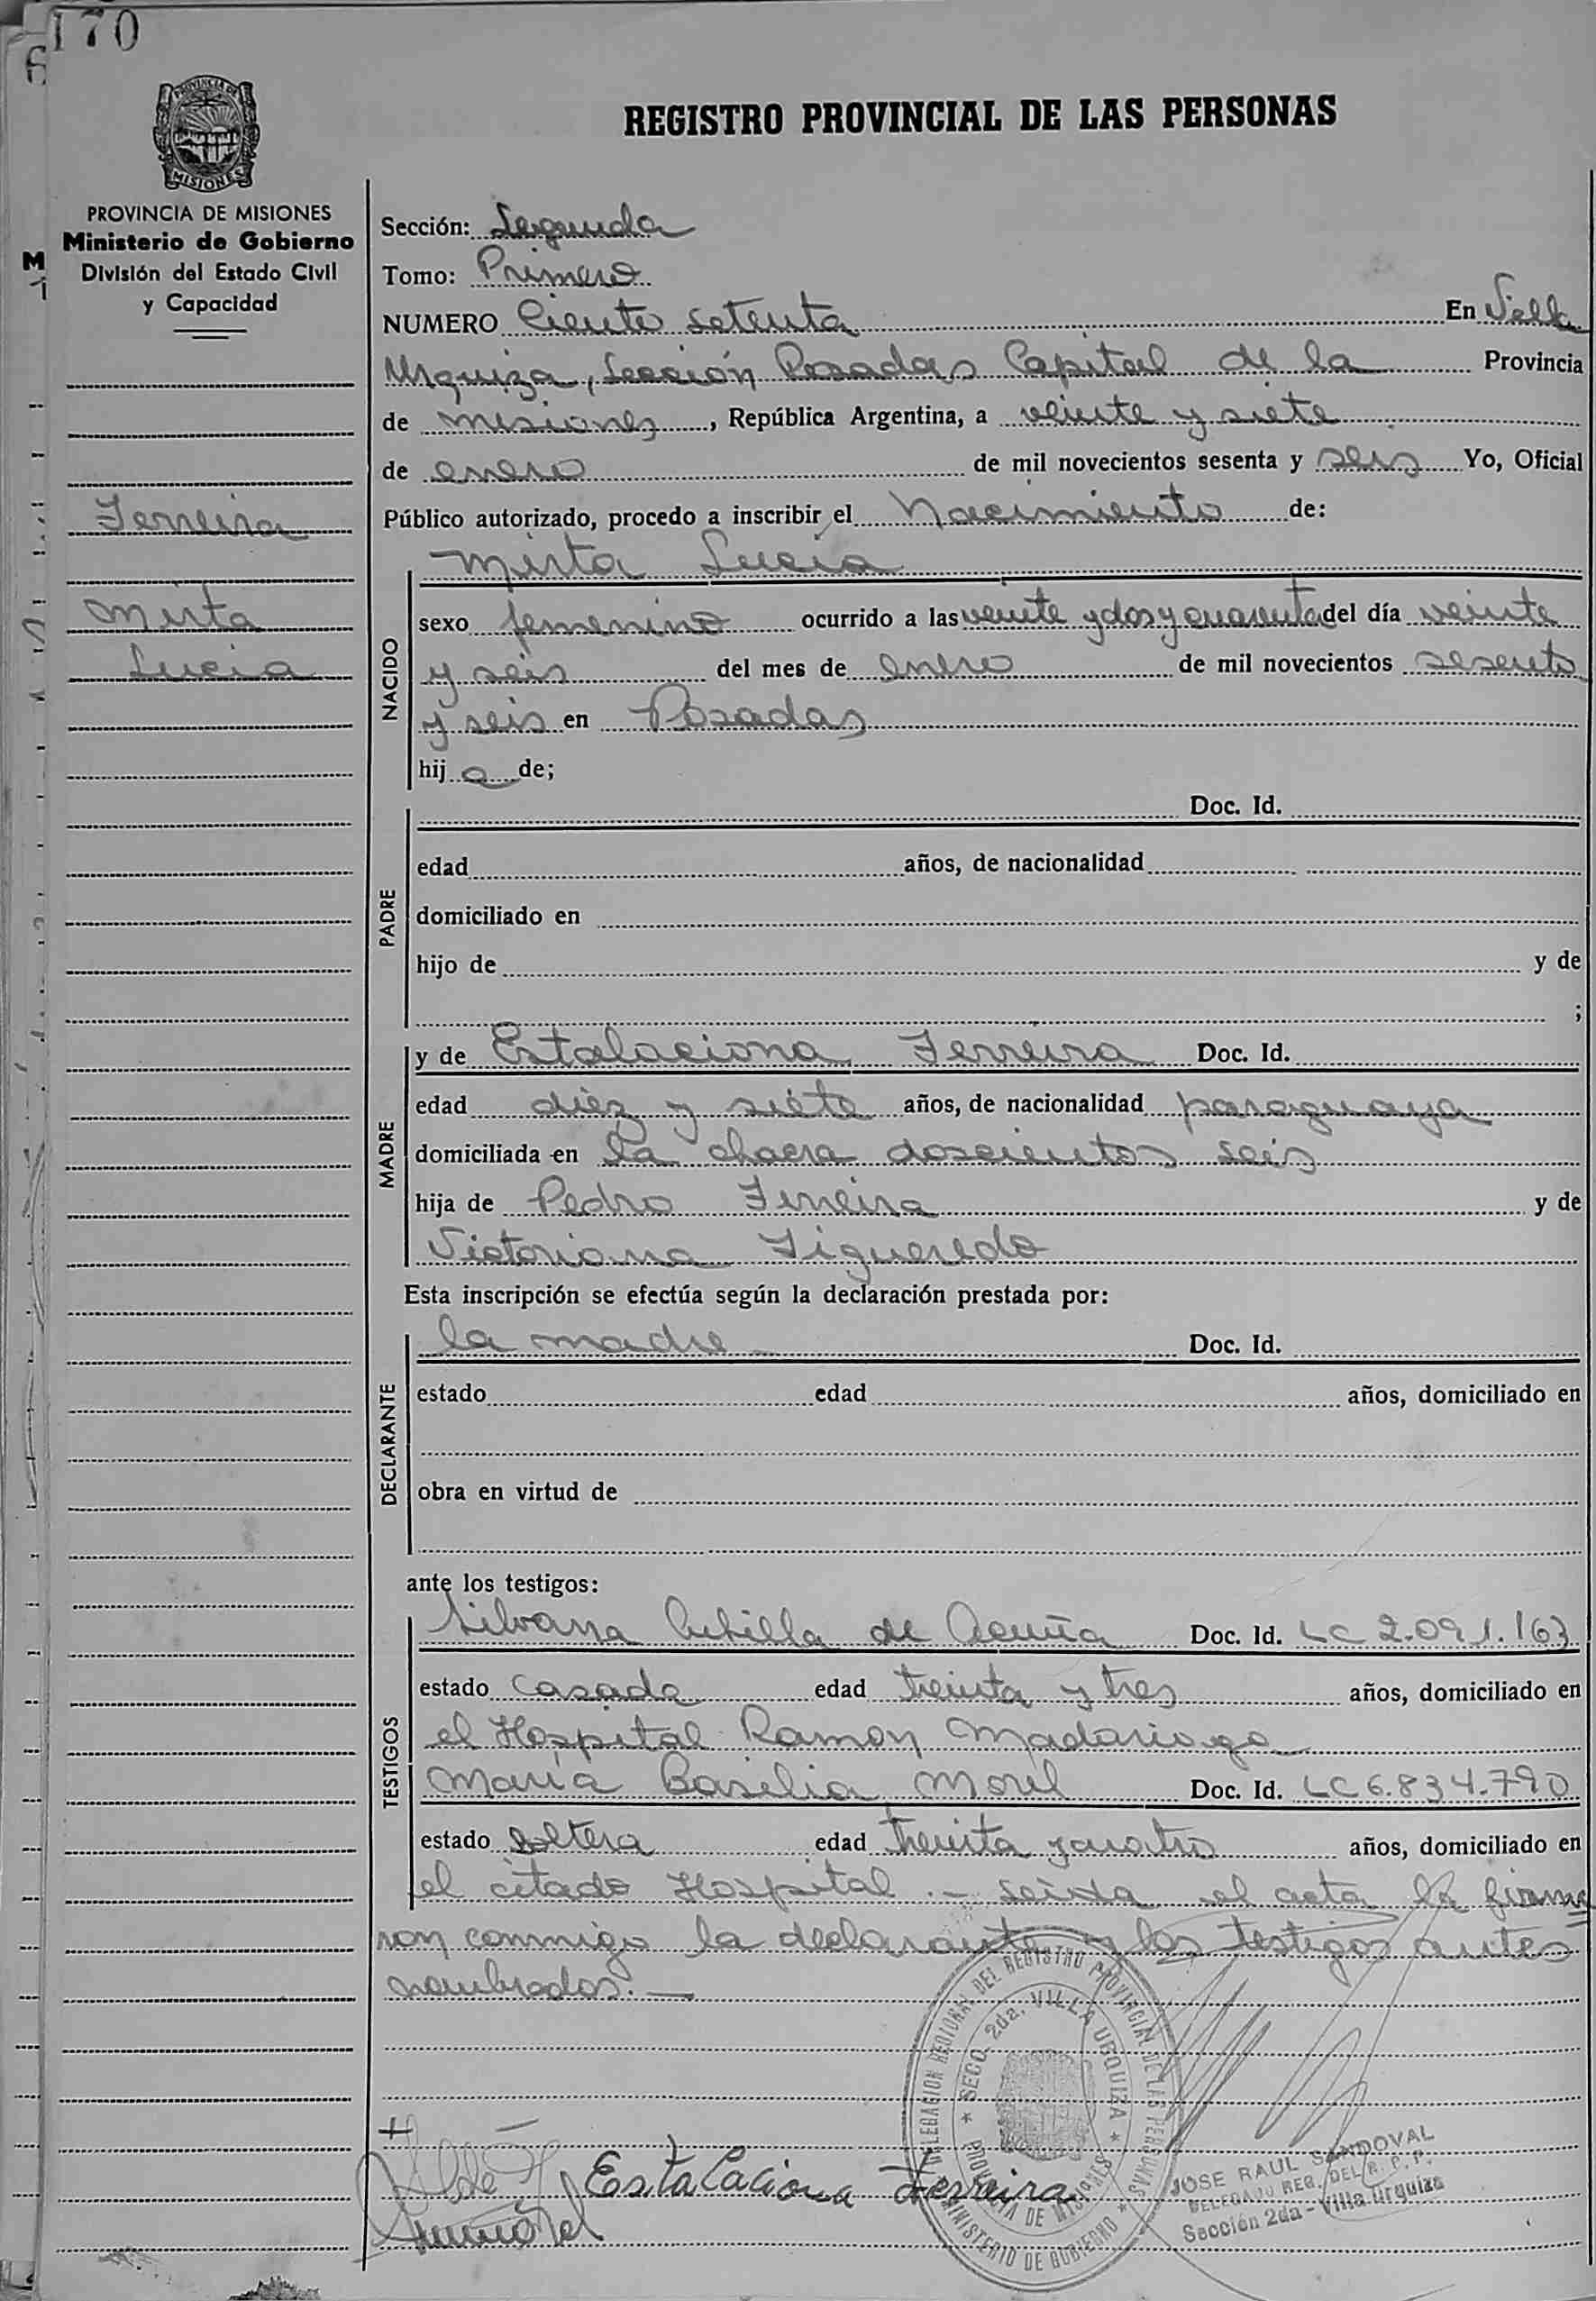 170
6
PROVINCIA DE
MISIONES
REGISTRO PROVINCIAL DE LAS PERSONAS
PROVINCIA DE MISIONES
Ministerio de Gobierno
División del Estado Civil
y Capacidad
M
Ferreira
Mirta
Lucia
Sección: Segunda
Tomo: Primero
NUMERO Ciento setenta En Villa
Urquiza, Sección Posadas Capital de la Provincia
de misiones, República Argentina, a veinte y siete
de enero de mil novecientos sesenta y seis Yo, Oficial
Público autorizado, procedo a inscribir el Nacimiento de:
NACIDO
Mirta Lucia
sexo femenino ocurrido a las veinte y dos y cuarenta del día veinte
y seis del mes de enero de mil novecientos sesenta
y seis en Posadas
hija de;
PADRE
Doc. Id.
edad años, de nacionalidad
domiciliado en
hijo de y de
;
MADRE
y de Estalaciona Ferreira Doc. Id.
edad diez y siete años, de nacionalidad paraguaya
domiciliada en la chacra doscientos seis
hija de Pedro Ferreira y de
Victoriana Figueredo
Esta inscripción se efectúa según la declaración prestada por:
DECLARANTE
la madre Doc. Id.
estado edad años, domiciliado en
obra en virtud de
ante los testigos:
TESTIGOS
Silvana de Acuña Doc. Id. LC 2.091.163
estado casada edad treinta y tres años, domiciliado en
el Hospital Ramon Madariaga
María Basilia Morel Doc. Id. LC 6.834.790
estado soltera edad treinta y cuatro años, domiciliado en
el citado Hospital.- Leida el acta la firma
ron conmigo la declarante y los testigos antes
nombrados.—
DELEGACION REGIONAL DEL REGISTRO PROVINCIAL DE LAS PERSONAS
* SECC. 2da. VILLA URQUIZA *
PROVINCIA DE MISIONES
* MINISTERIO DE GOBIERNO *
Estalaciona Ferreira
JOSE RAUL SANDOVAL
DELEGADO REG. DEL R. P. P.
Sección 2da - Villa Urquiza